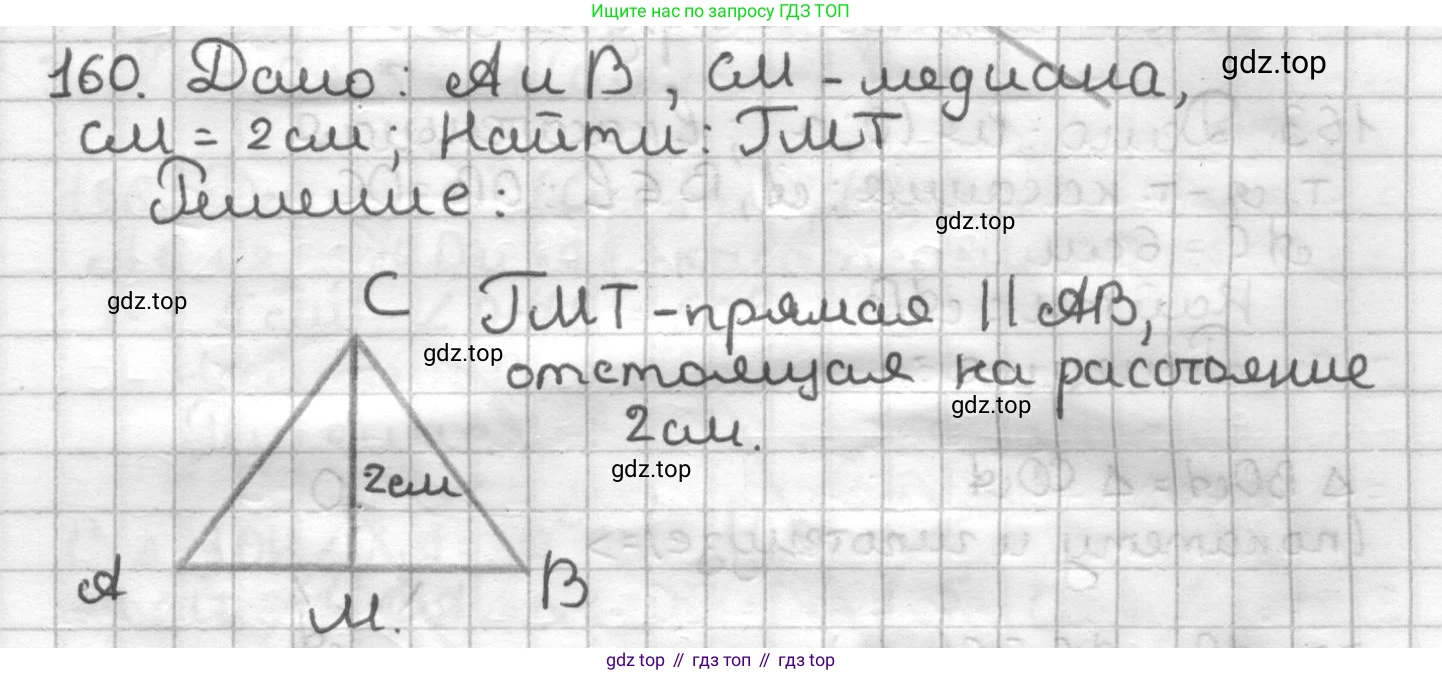 Ищите нас по запросу ГДЗ ТОП
160. Дано: A и B, CM - медиана,
gdz.top
CM = 2 см; Найти: ГМТ
Решение:
gdz.top
gdz.top
C
ГМТ - прямая || AB,
gdz.top
отстоящая на расстояние
gdz.top
2 см.
gdz.top
2см
A
B
M.
gdz top // гдз топ // гдз top